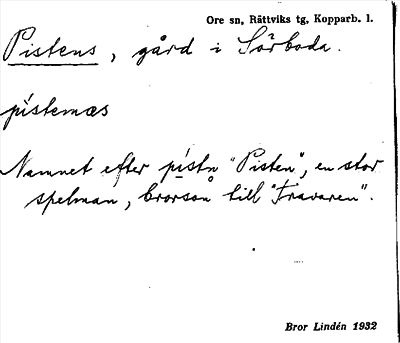 Ore sn, Rättviks tg, Kopparb. l.
Pistens, gård i Sörboda.
pistemæs
Namnet efter pistn̥ "Pisten", en stor
spelman, brorson till "Travaren".
Bror Lindén 1932